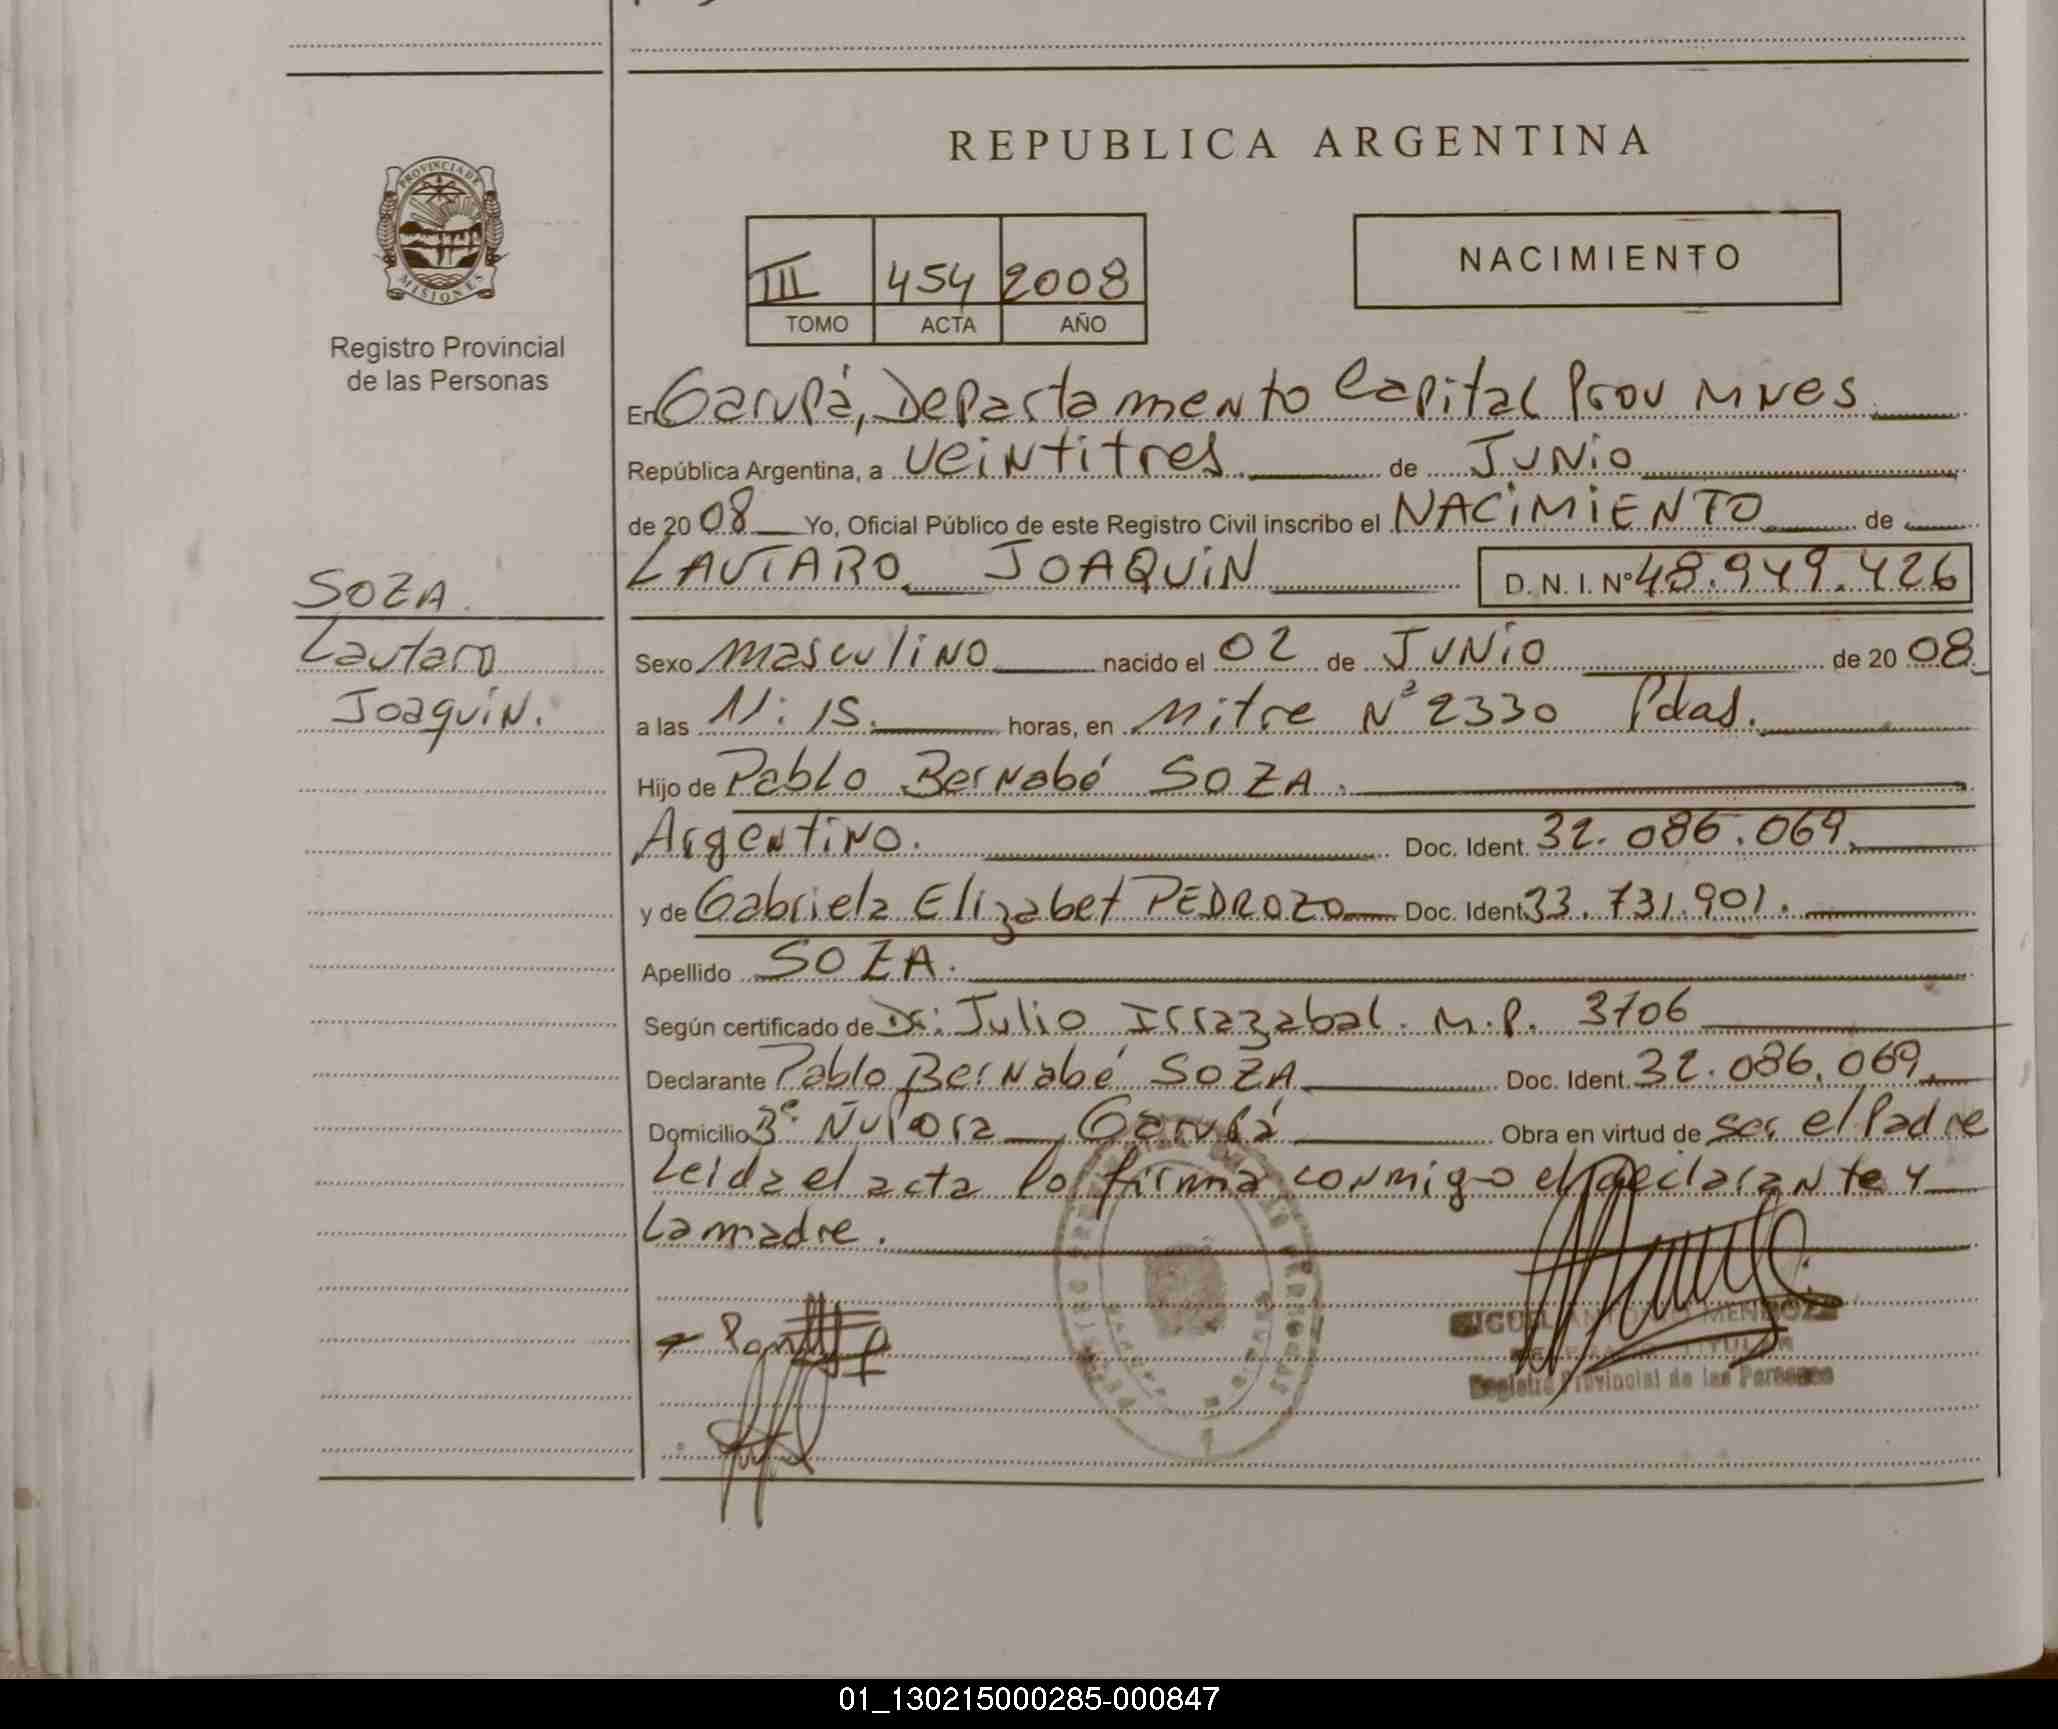 REPUBLICA ARGENTINA
PROVINCIA DE
MISIONES
Registro Provincial
de las Personas
III 454 2008
TOMO ACTA AÑO
NACIMIENTO
En Garupá, Departamento Capital Prov Mnes
República Argentina, a veintitres de JUNIO
de 2008 Yo, Oficial Público de este Registro Civil inscribo el NACIMIENTO de
LAUTARO JOAQUIN D. N. I. Nº 48.949.426
SOZA
Lautaro
Joaquin.
Sexo masculino nacido el 02 de JUNIO de 2008
a las 11:15. horas, en Mitre Nº 2330 Pdas.
Hijo de Pablo Bernabé SOZA.
Argentino. Doc. Ident. 32.086.069
y de Gabriela Elizabet PEDROZO Doc. Ident. 33.731.901.
Apellido SOZA.
Según certificado de Dr: Julio Irrazabal. M.P. 3706
Declarante Pablo Bernabé SOZA Doc. Ident. 32.086.069
Domicilio Garupá Obra en virtud de ser el Padre
Leida el acta lo firma conmigo el declarante y
la madre.
MENDOZA
Registro Provincial de las Personas
01_130215000285-000847